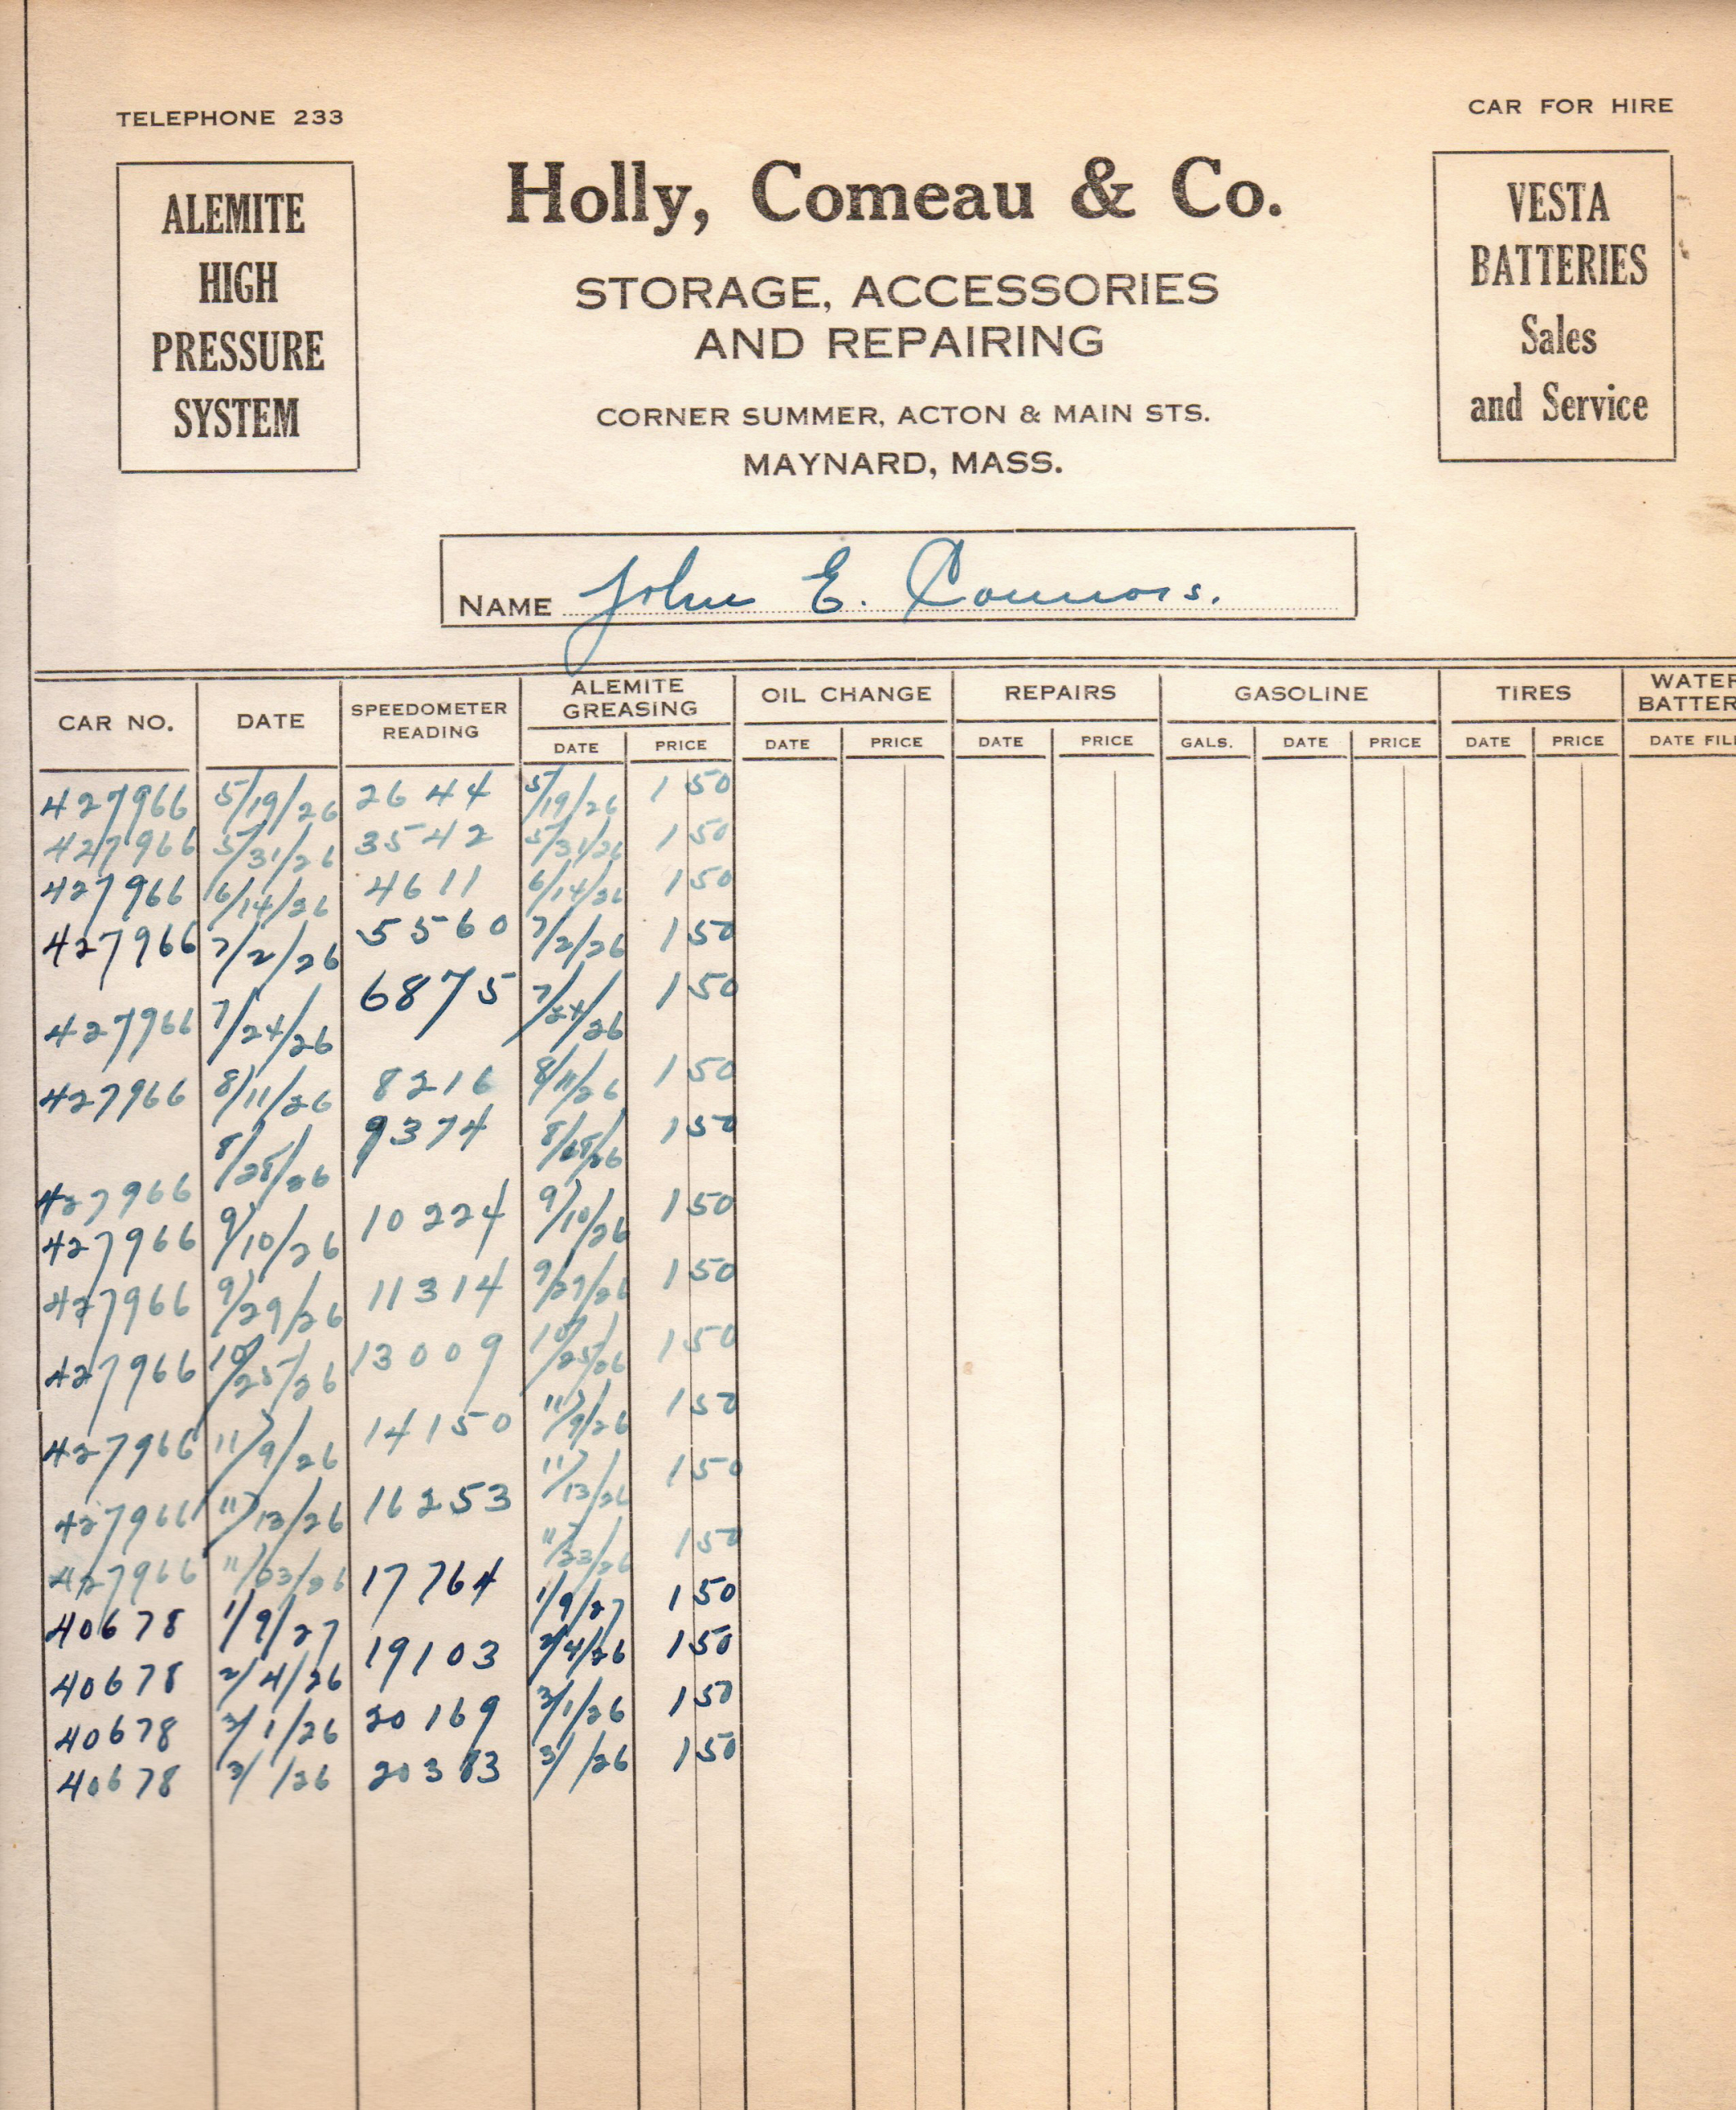 TELEPHONE 233
CAR FOR HIRE
ALEMITE
HIGH
PRESSURE
SYSTEM
Holly, Comeau & Co.
STORAGE, ACCESSORIES
AND REPAIRING
CORNER SUMMER, ACTON & MAIN STS.
MAYNARD, MASS.
VESTA
BATTERIES
Sales
and Service
NAME John E. Connors.
CAR NO. DATE SPEEDOMETER READING ALEMITE GREASING OIL CHANGE REPAIRS GASOLINE TIRES WATER BATTER
DATE PRICE DATE PRICE DATE PRICE GALS. DATE PRICE DATE PRICE DATE FIL
427966 5/19/26 2644 5/19/26 1 50
427966 5/31/26 3542 5/31/26 1 50
427966 6/14/26 4611 6/14/26 1 50
427966 7/2/26 5560 7/2/26 1 50
427966 7/24/26 6875 7/24/26 1 50
427966 8/11/26 8216 8/11/26 1 50
427966 8/28/26 9374 1 50
427966 9/10/26 10224 9/10/26 1 50
427966 9/29/26 11314 9/29/26 1 50
427966 10/25/26 13009 10/25/26 1 50
427966 11/9/26 14150 11/9/26 1 50
427966 11/13/26 16253 11/13/26 1 50
427966 17764 11/23/26 1 50
40678 1/9/27 1/9/27 1 50
40678 2/4/26 19103 2/4/26 1 50
40678 3/1/26 20169 3/1/26 1 50
40678 3/ /26 3/ /26 1 50